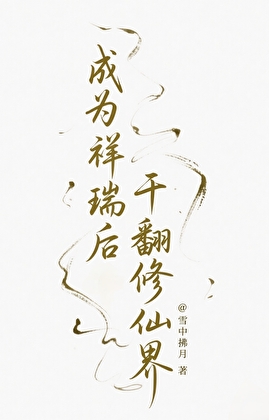 成为祥瑞后
干翻修仙界
@雪中拂月 著